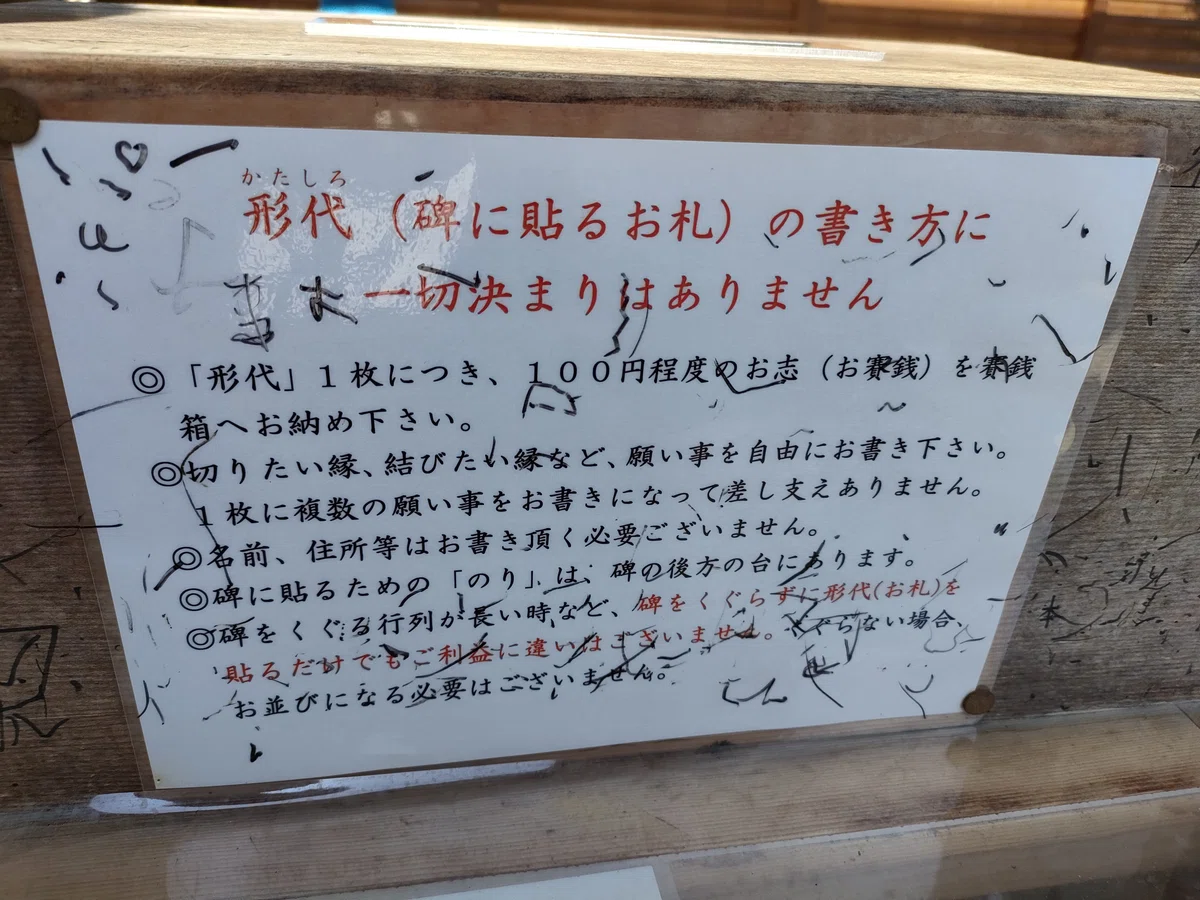 かたしろ
形代（碑に貼るお札）の書き方に
一切決まりはありません
◎「形代」１枚につき、１００円程度のお志（お賽銭）を賽銭
箱へお納め下さい。
◎切りたい縁、結びたい縁など、願い事を自由にお書き下さい。
１枚に複数の願い事をお書きになって差し支えありません。
◎名前、住所等はお書き頂く必要ございません。
◎碑に貼るための「のり」は、碑の後方の台にあります。
◎碑をくぐる行列が長い時など、碑をくぐらずに形代(お札)を
貼るだけでもご利益に違いはございません。くぐらない場合、
お並びになる必要はございません。